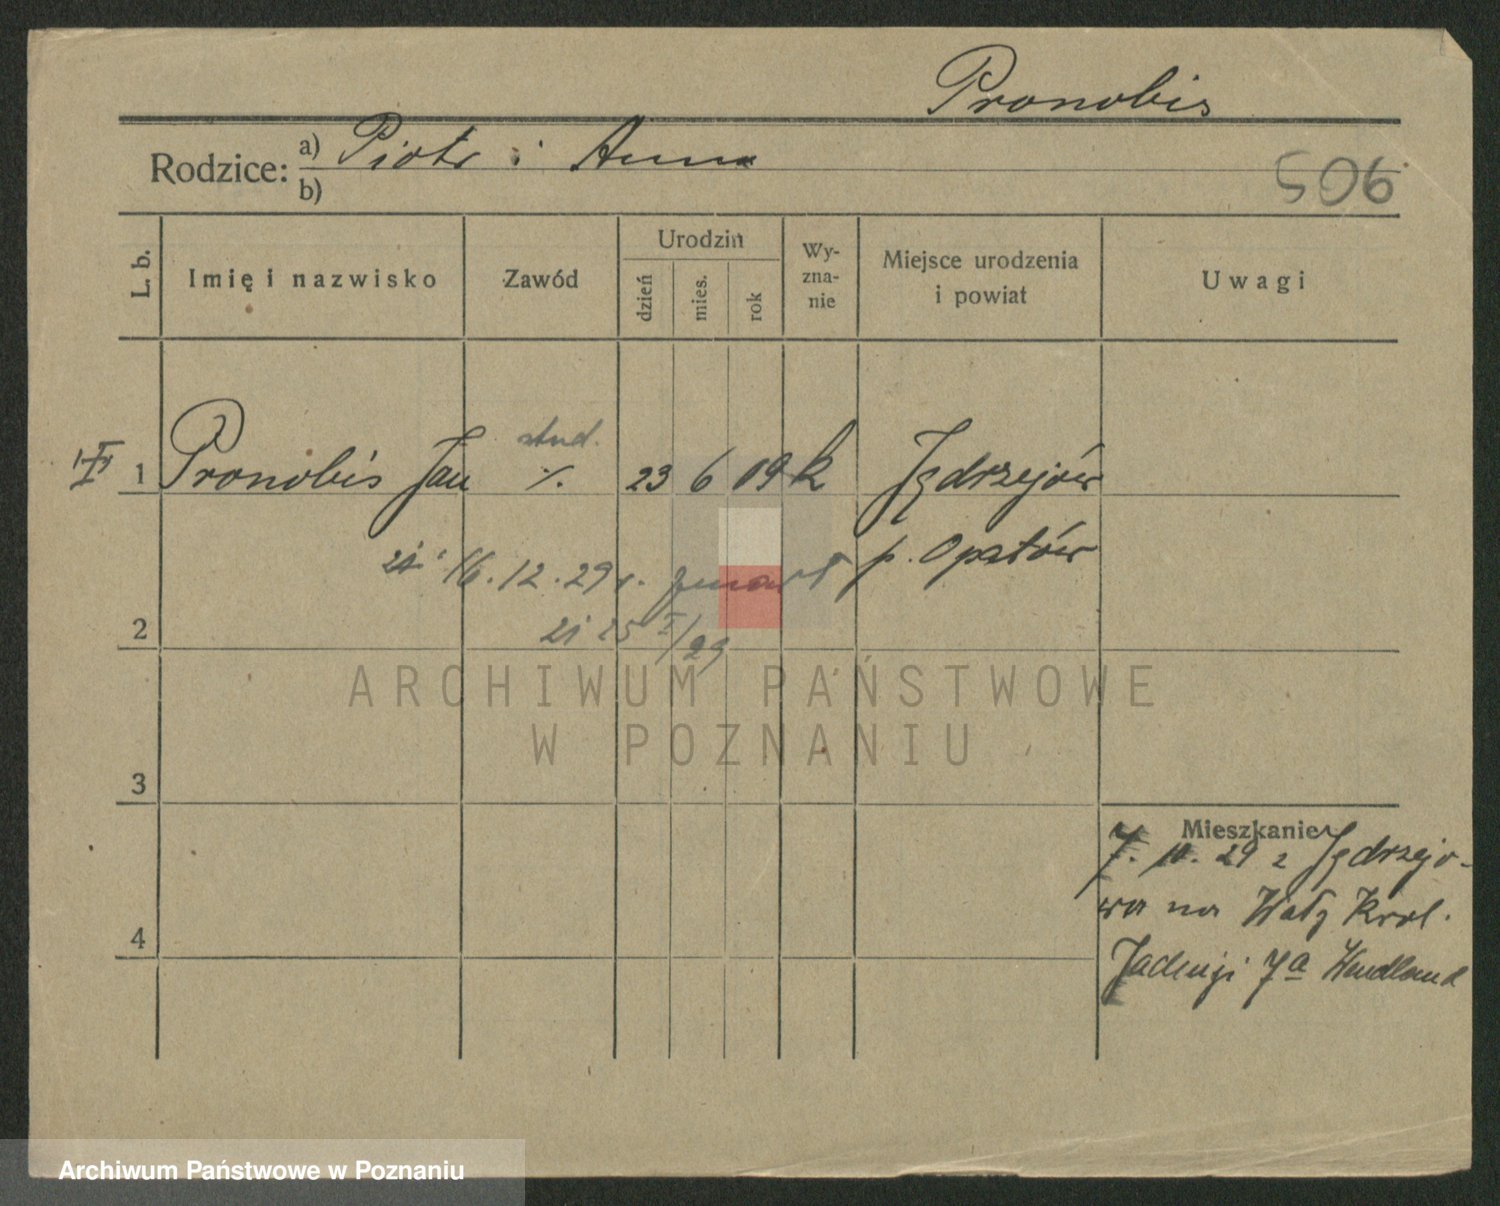 Pronobis
Rodzice: a) Piotr i Anna
b)
506
L. b.
Imię i nazwisko
Zawód
Urodzin
dzień
mies.
rok
Wy-
zna-
nie
Miejsce urodzenia
i powiat
Uwagi
stud.
1 Pronobis Jan 23 6 09 k Jędrzejów
p. Opatów
16.12.29 r. zmarł
25 I/29
2
3
4
Mieszkanie
7. 10. 29 z Jędrzejo-
wa na Wały Król.
Jadwigi 7a Wendland
ARCHIWUM PAŃSTWOWE
W POZNANIU
Archiwum Państwowe w Poznaniu